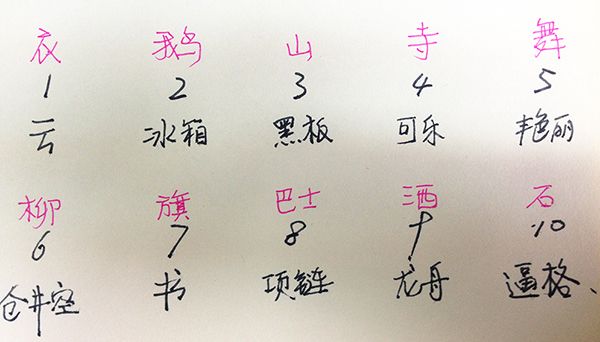 衣 鹅 山 寺 舞
1 2 3 4 5
云 冰箱 黑板 可乐 艳丽
柳 旗 巴士 酒 石
6 7 8 9 10
仓井空 书 项链 龙舟 逼格、